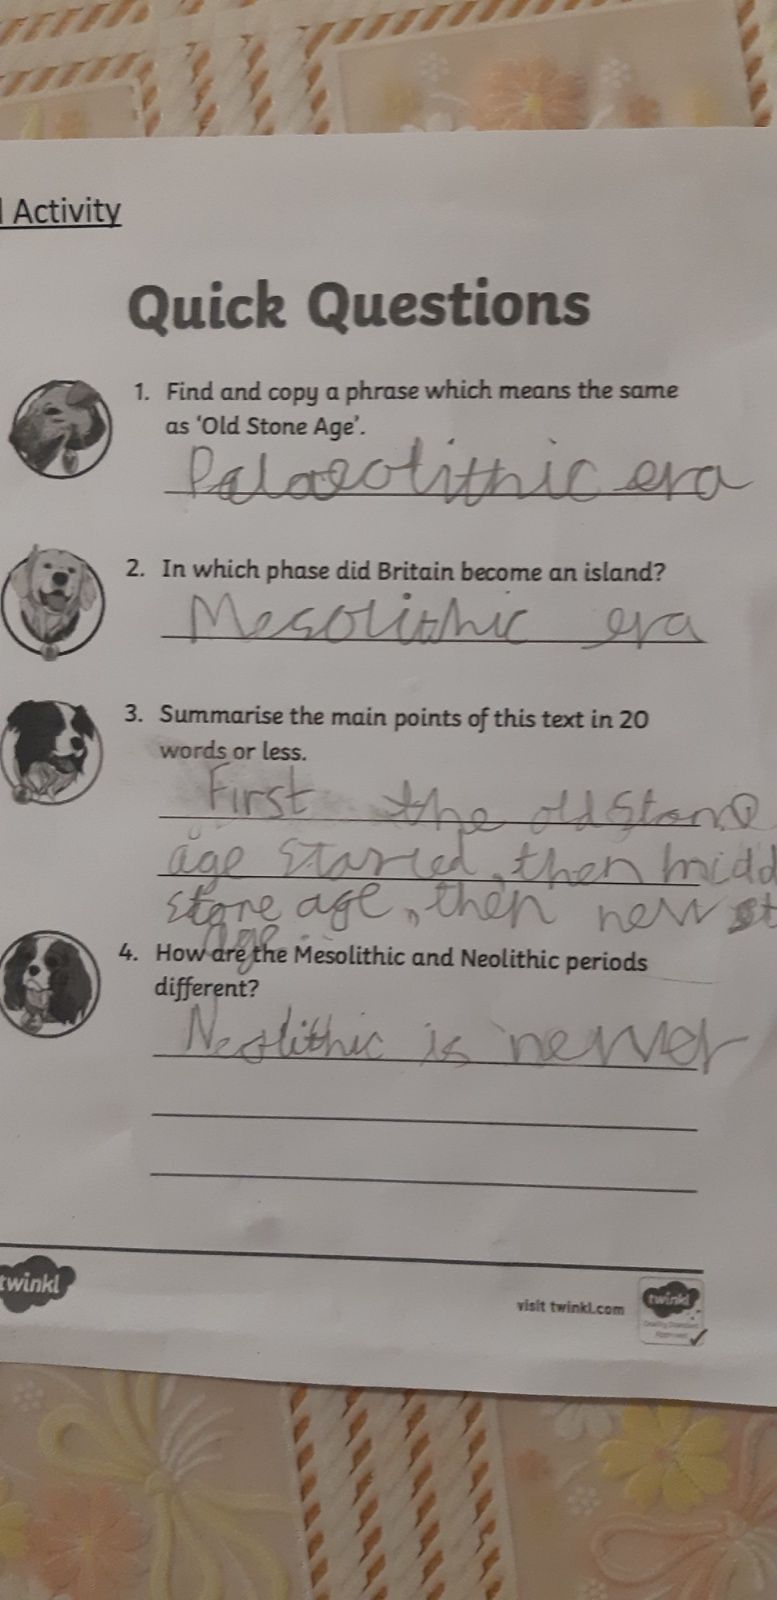 l Activity
Quick Questions
1. Find and copy a phrase which means the same
as ‘Old Stone Age’.
Palaeolithic era
2. In which phase did Britain become an island?
Mesolithic era
3. Summarise the main points of this text in 20
words or less.
First the old Stone
age started, then midd
stone age, then new st
age.
4. How are the Mesolithic and Neolithic periods
different?
Neolithic is newer
twinkl
visit twinkl.com
twinkl
Quality Standard
Approved